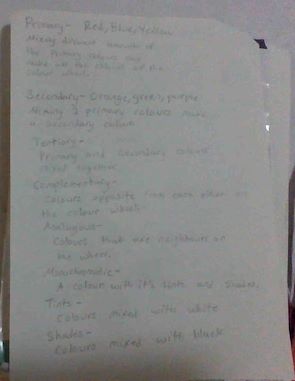 Primary- Red, Blue, Yellow
Mixing different amounts of
the Primary colours can
make all the colours of the
colour wheel.
Secondary- Orange, green, purple
Mixing 2 primary colours make
a secondary colour
Tertiary-
Primary and secondary colours
mixed together
Complementary-
Colours opposite from each other on
the colour wheel
Analogous-
Colours that are neighbours on
the wheel.
Monochromatic-
A colour with it's tints and shades.
Tints-
Colours mixed with white
Shades-
Colours mixed with black